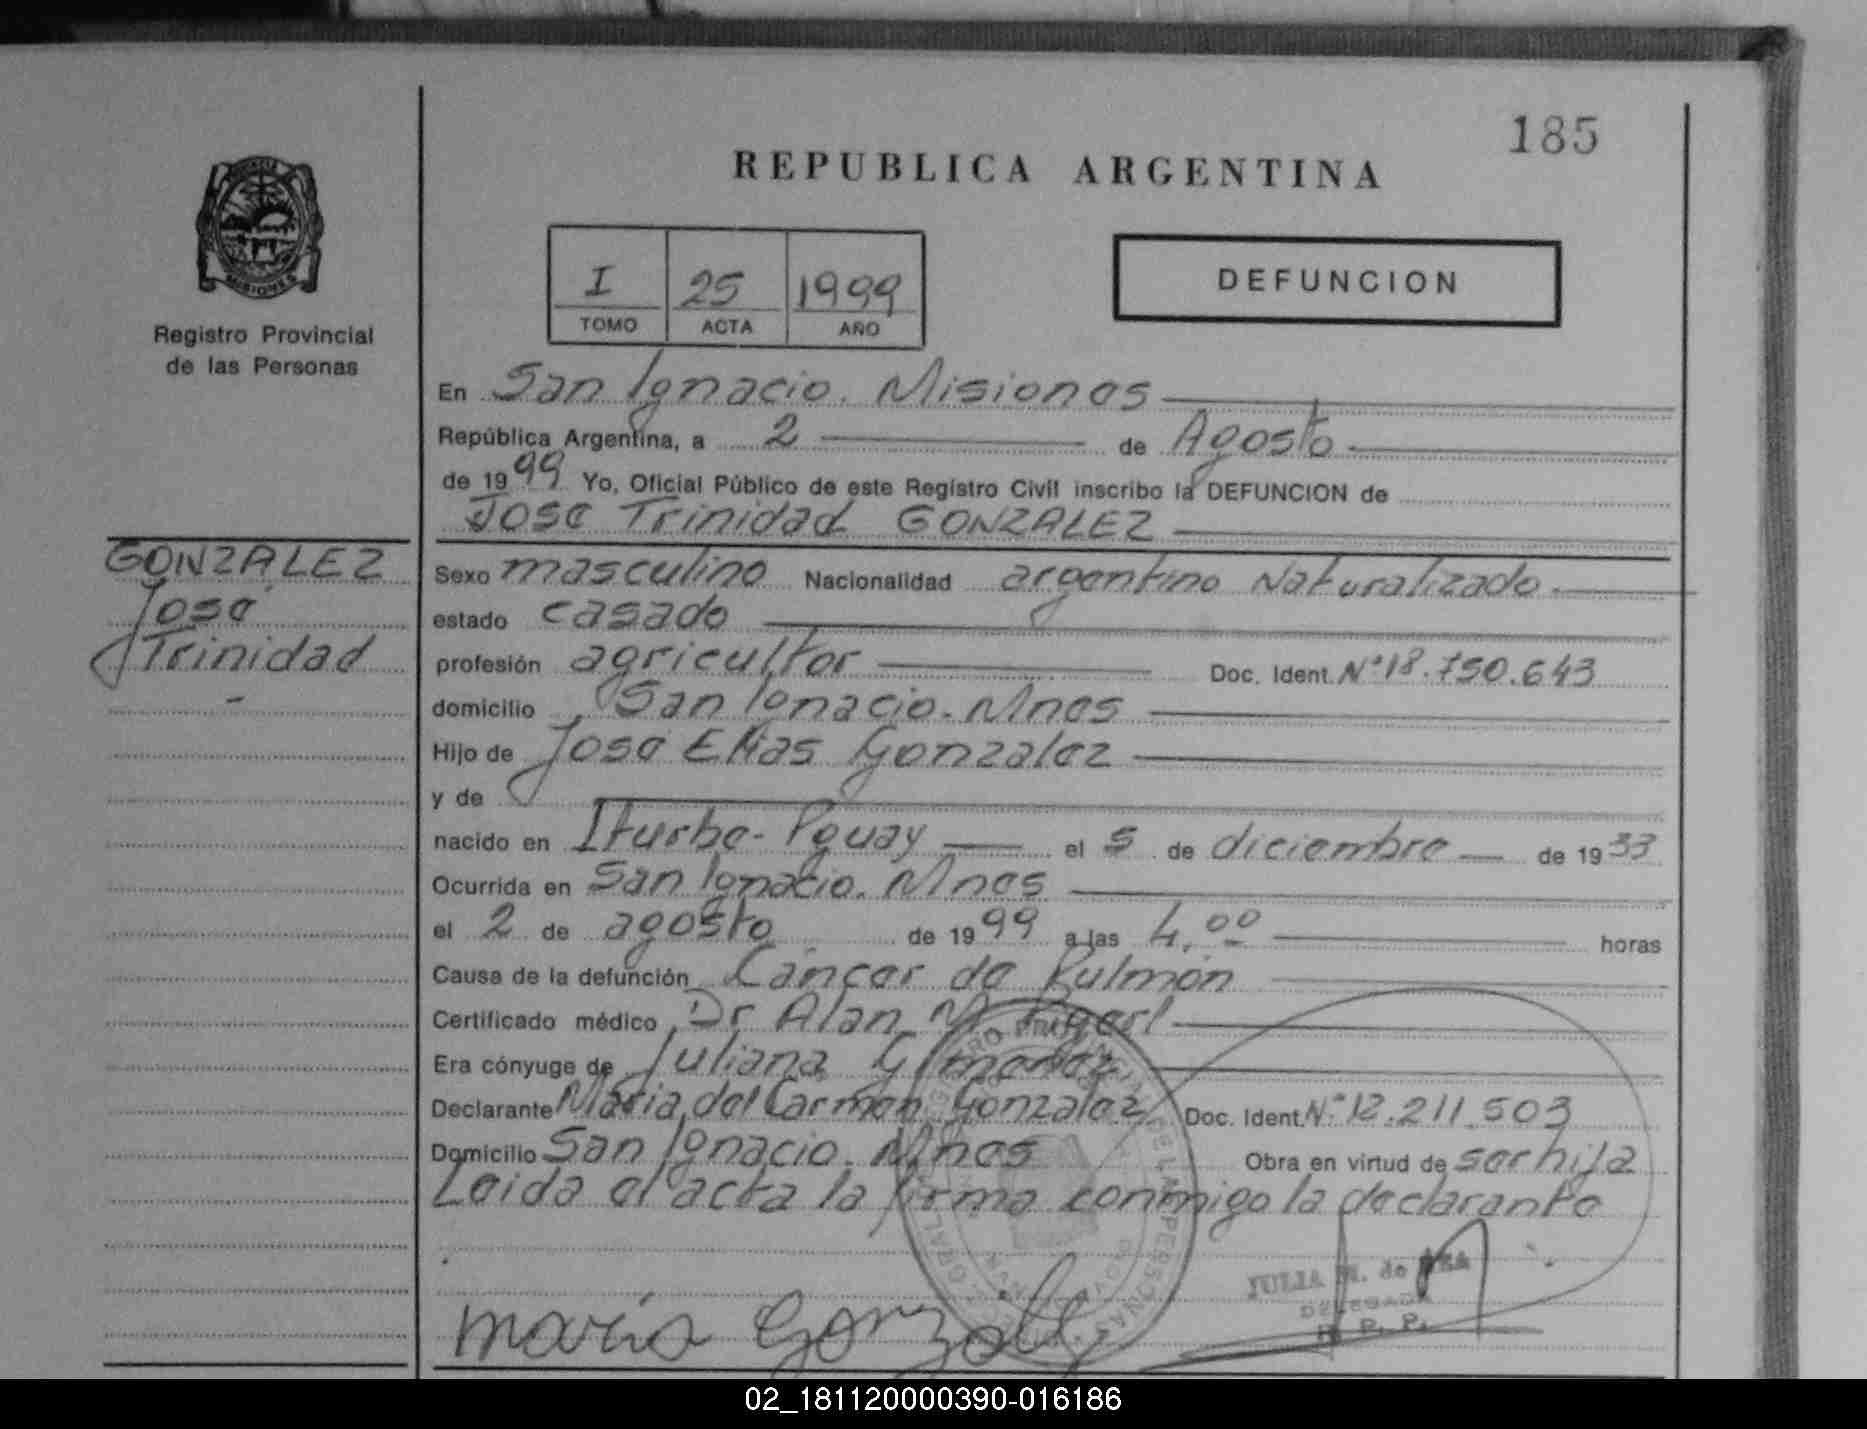 185
REPUBLICA ARGENTINA
MISIONES
Registro Provincial
de las Personas
I 25 1999
TOMO ACTA AÑO
DEFUNCION
En San Ignacio. Misiones
República Argentina, a 2 de Agosto
de 1999 Yo, Oficial Público de este Registro Civil inscribo la DEFUNCION de
José Trinidad GONZALEZ
GONZALEZ
José
Trinidad
Sexo masculino Nacionalidad argentino Naturalizado
estado casado
profesión agricultor Doc. Ident. Nº 18.750.643
domicilio San Ignacio. Mnes
Hijo de José Elias Gonzalez
y de
nacido en Iturbe - Pguay el 5 de diciembre de 1933
Ocurrida en San Ignacio. Mnes
el 2 de agosto de 1999 a las 4,00 horas
Causa de la defunción Cáncer de Pulmón
Certificado médico Dr Alan M.
Era cónyuge de Juliana Gimenez
Declarante Maria del Carmen Gonzalez Doc. Ident. Nº 12.211.503
Domicilio San Ignacio. Mnes Obra en virtud de ser hija
Leida el acta la firma conmigo la declarante
maria Gonzalez
JULIA M. de
DELEGADA
R. P. P.
02_181120000390-016186